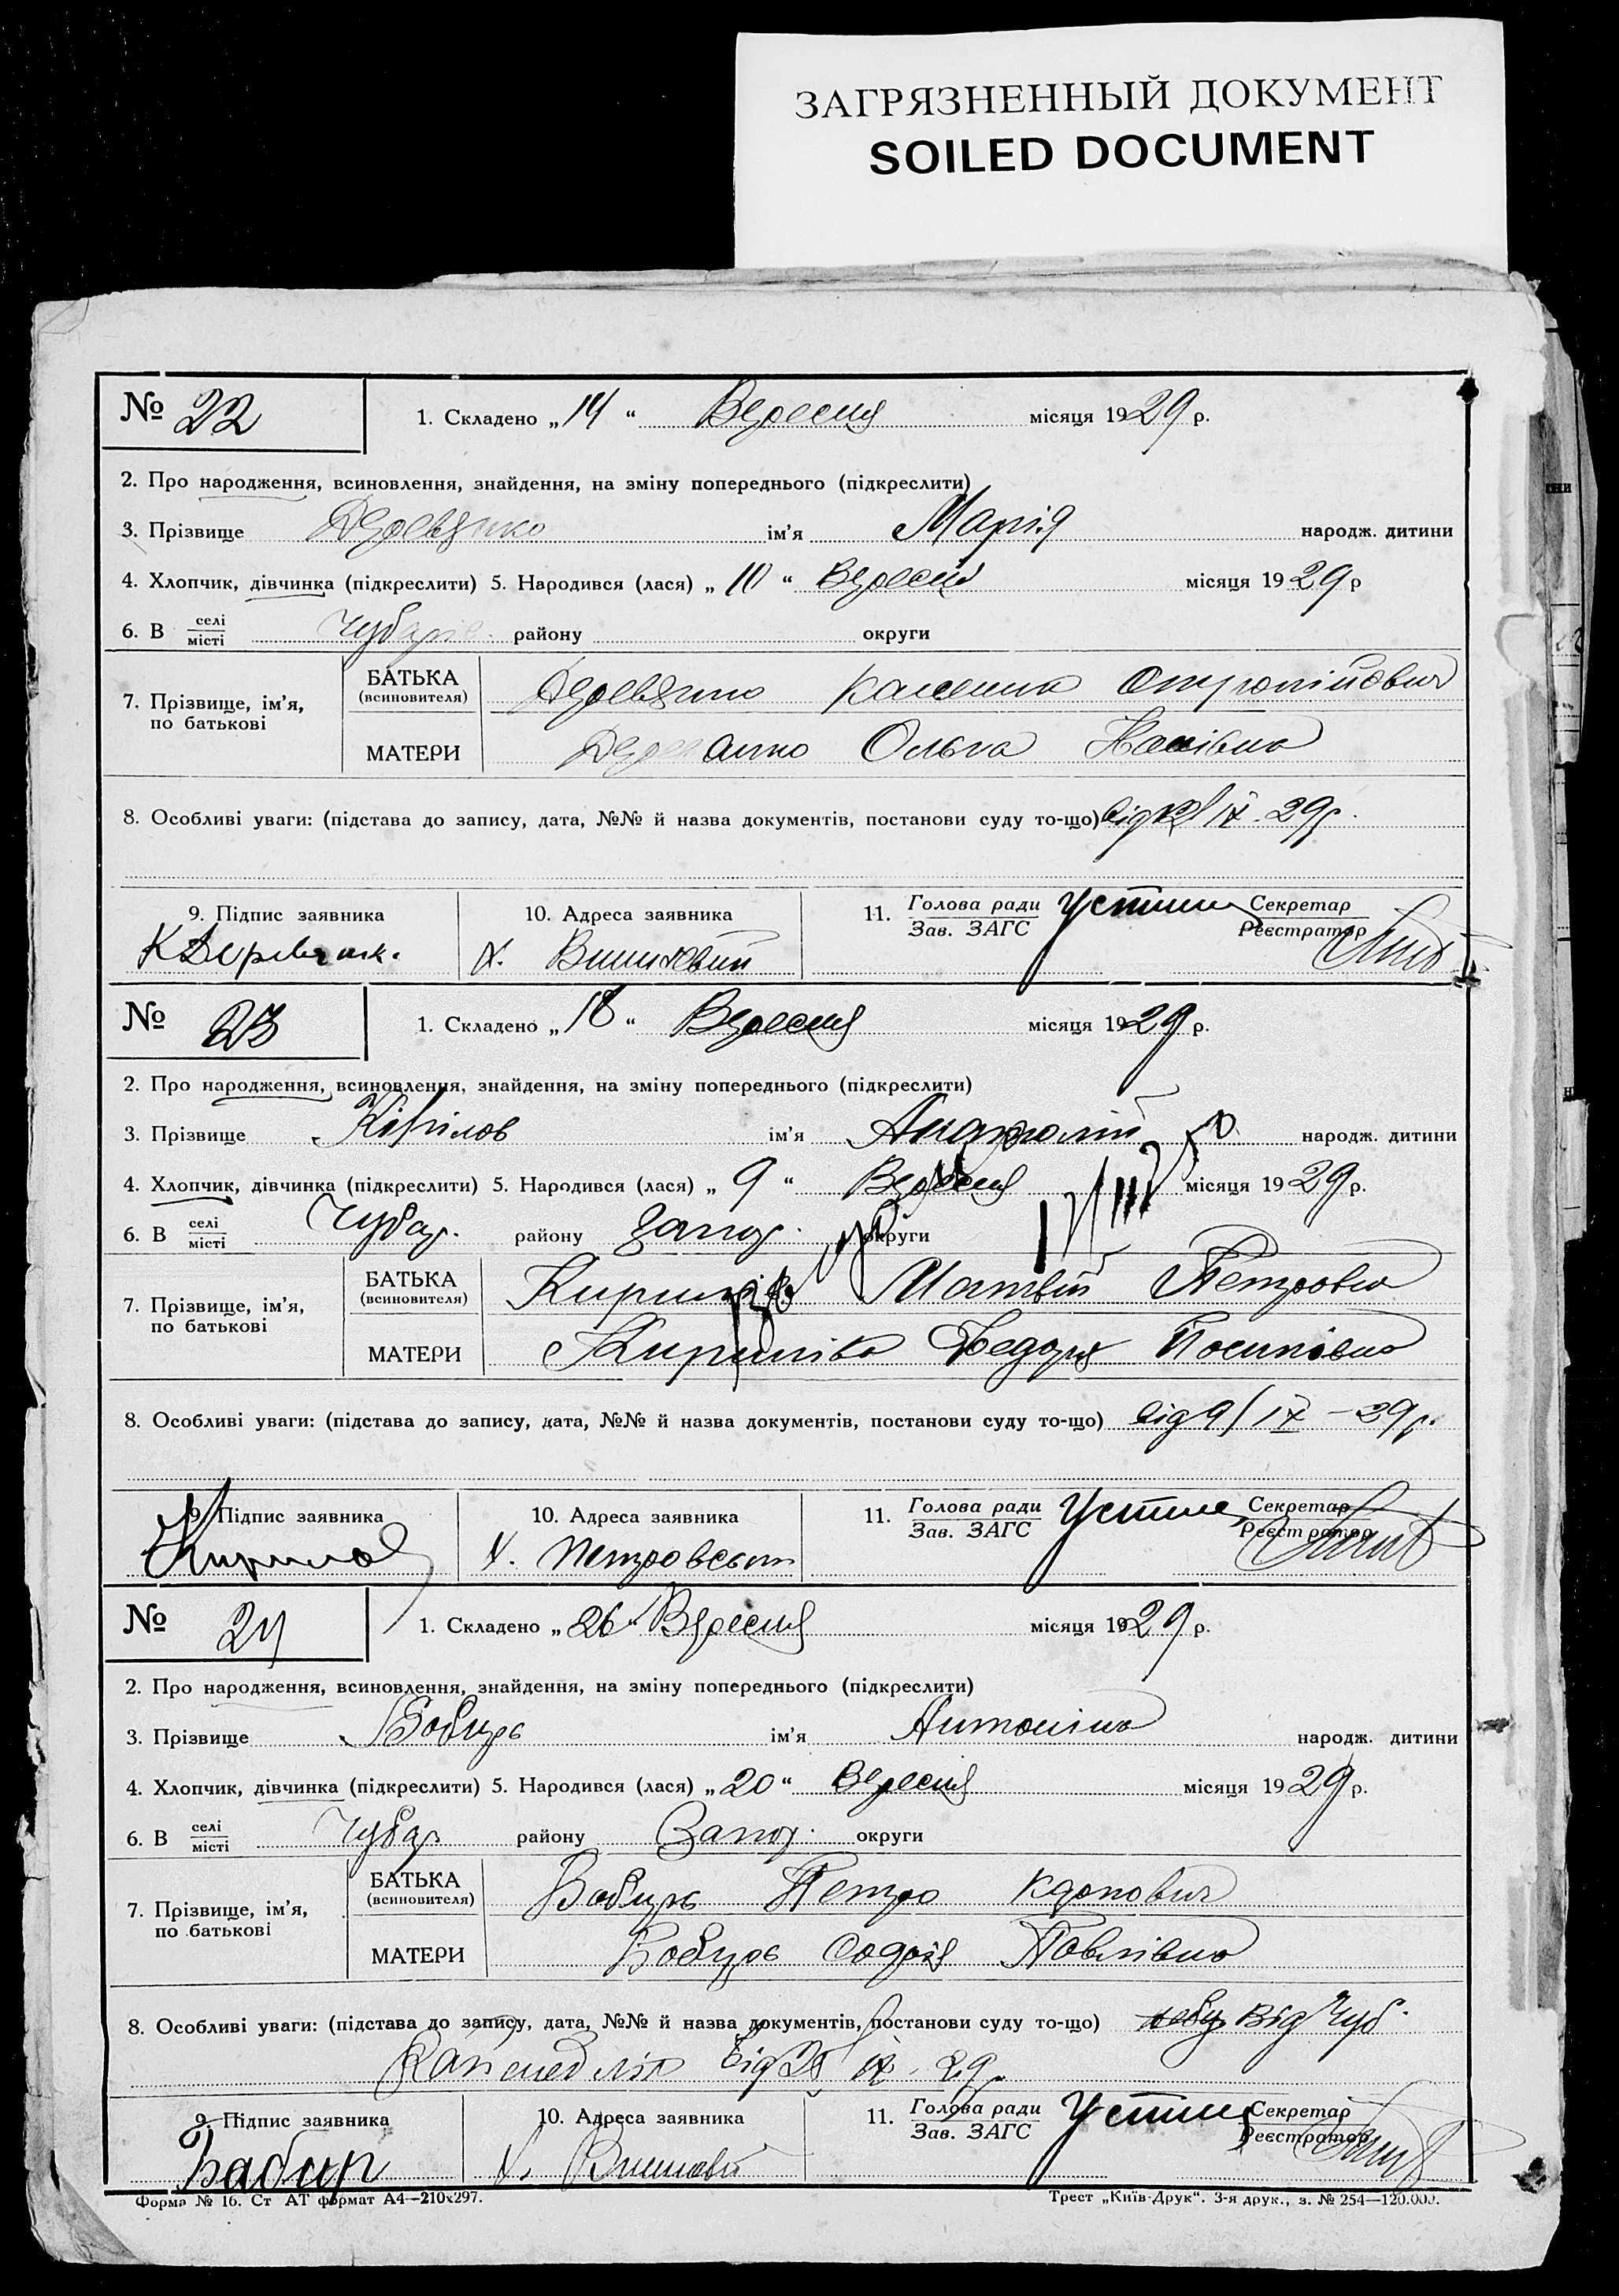 ЗАГРЯЗНЕННЫЙ ДОКУМЕНТ
SOILED DOCUMENT
№ 22 1. Складено „14“ Вересня місяця 1929 р.
2. Про народження, всиновлення, знайдення, на зміну попереднього (підкреслити)
3. Прізвище Деревянко ім'я Марія народж. дитини
4. Хлопчик, дівчинка (підкреслити) 5. Народився (лася) „10“ Вересня місяця 1929 р
6. В селі місті Чубарів району округи
7. Прізвище, ім'я, по батькові
БАТЬКА (всиновителя) Деревянко
МАТЕРИ Деревянко Ольга
8. Особливі уваги: (підстава до запису, дата, №№ й назва документів, постанови суду то-що) від 12/IX 29р.
9. Підпис заявника 10. Адреса заявника 11. Голова ради Зав. ЗАГС Секретар Реєстратор
х.
№ 23 1. Складено „18“ Вересня місяця 1929 р.
2. Про народження, всиновлення, знайдення, на зміну попереднього (підкреслити)
3. Прізвище Кірілов ім'я Анатолій народж. дитини
4. Хлопчик, дівчинка (підкреслити) 5. Народився (лася) „9“ Вересня місяця 1929 р.
6. В селі місті Чубар. району Запор. округи
7. Прізвище, ім'я, по батькові
БАТЬКА (всиновителя) Матвій Петрович
МАТЕРИ Кирилова Федора Йосипівна
8. Особливі уваги: (підстава до запису, дата, №№ й назва документів, постанови суду то-що) від 9/IX – 29р.
9. Підпис заявника 10. Адреса заявника 11. Голова ради Зав. ЗАГС Секретар Реєстратор
Кирилов х. Петровський
№ 24 1. Складено „26“ Вересня місяця 1929 р.
2. Про народження, всиновлення, знайдення, на зміну попереднього (підкреслити)
3. Прізвище Бобирь ім'я Антоніна народж. дитини
4. Хлопчик, дівчинка (підкреслити) 5. Народився (лася) „20“ Вересня місяця 1929 р.
6. В селі місті Чубар району Запор. округи
7. Прізвище, ім'я, по батькові
БАТЬКА (всиновителя) Бобирь Петро
МАТЕРИ Бобирь Павлівна
8. Особливі уваги: (підстава до запису, дата, №№ й назва документів, постанови суду то-що) Від Чуб.
від IX 29р
9. Підпис заявника 10. Адреса заявника 11. Голова ради Зав. ЗАГС Секретар Реєстратор
х.
Форма № 16. Ст АТ формат А4—210x297. Трест „Київ-Друк“. 3-я друк., з. № 254—120.000.